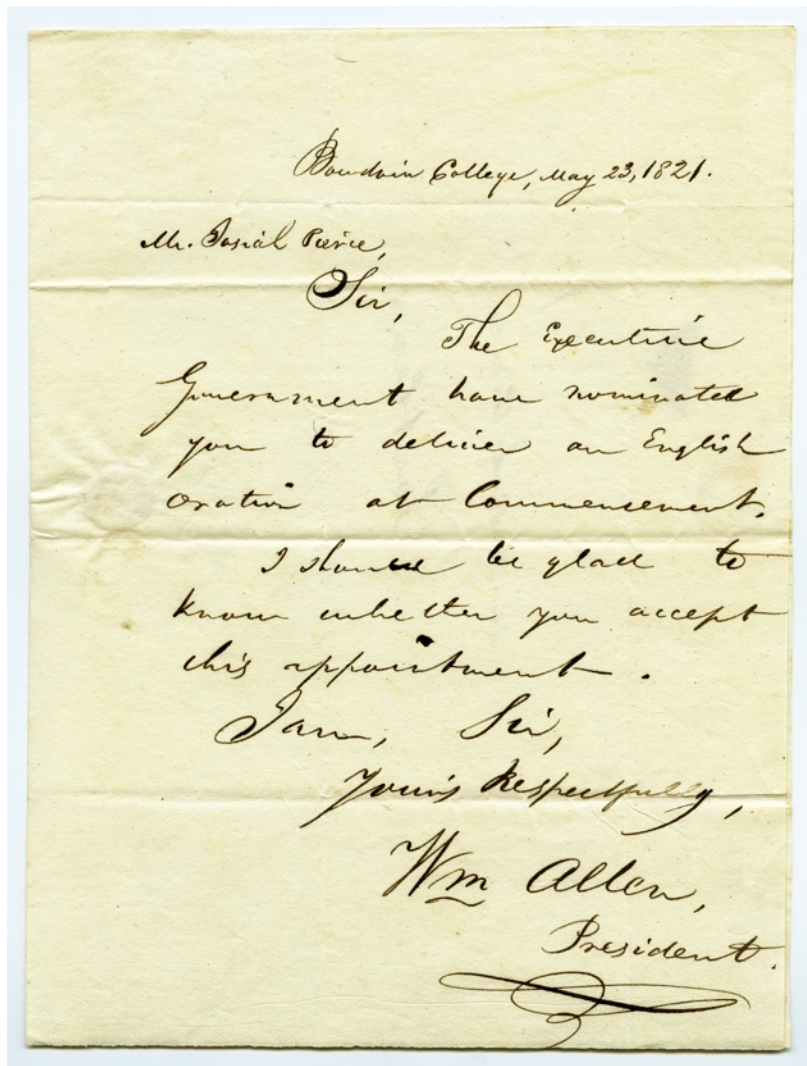 Bowdoin College, May 23, 1821.
Mr. Josiah Pierce,
Sir,
The Executive
Government have nominated
you to deliver an English
Oration at Commencement.
I should be glad to
know whether you accept
this appointment.
I am, Sir,
Yours Respectfully,
Wm Allen,
President.